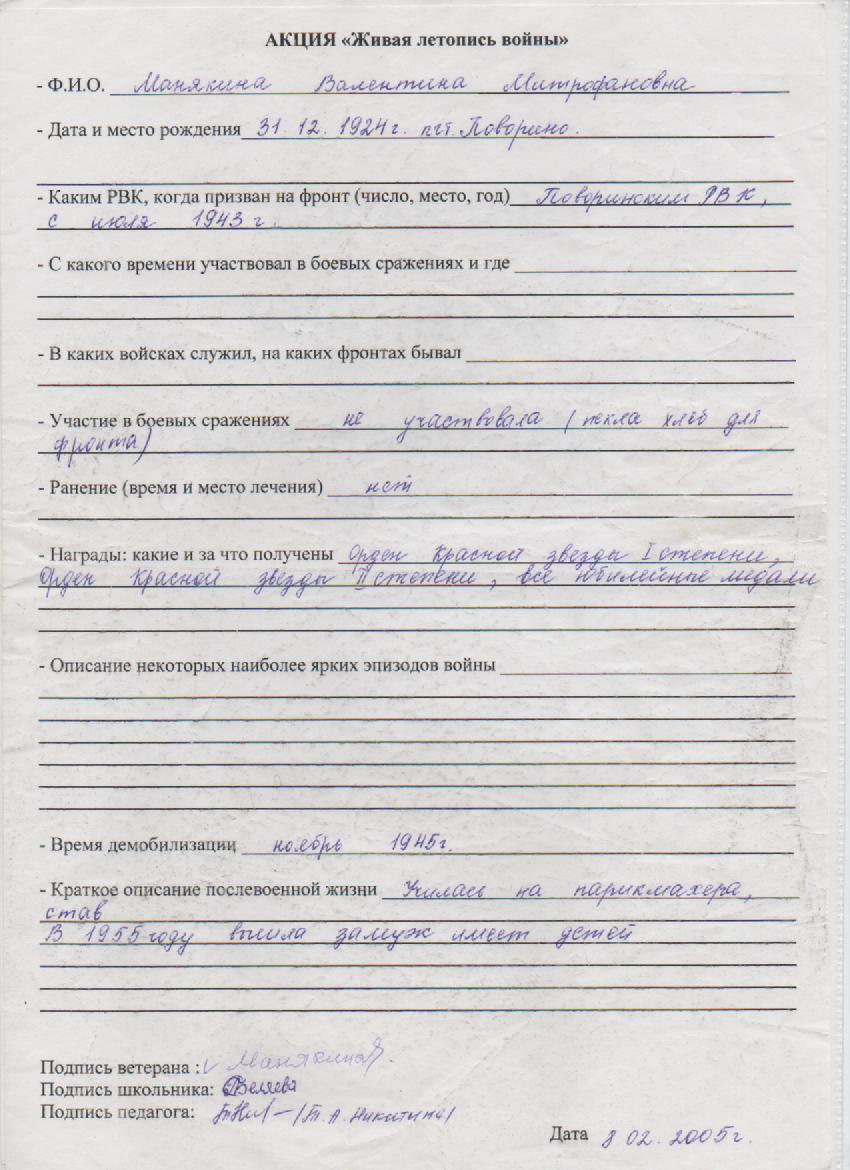 АКЦИЯ «Живая летопись войны»
- Ф.И.О. Манякина Валентина Митрофановна
- Дата и место рождения 31.12.1924г. пгт. Поворино.
- Каким РВК, когда призван на фронт (число, место, год) Поворинским РВК,
с июля 1943 г.
- С какого времени участвовал в боевых сражениях и где
- В каких войсках служил, на каких фронтах бывал
- Участие в боевых сражениях не участвовала (пекла хлеб для
фронта)
- Ранение (время и место лечения) нет
- Награды: какие и за что получены Орден Красной звезды I степени,
Орден Красной звезды II степени, все юбилейные медали
- Описание некоторых наиболее ярких эпизодов войны
- Время демобилизации ноябрь 1945г.
- Краткое описание послевоенной жизни Училась на парикмахера,
став
В 1955 году вышла замуж имеет детей
Подпись ветерана: Манякина
Подпись школьника: Беляева
Подпись педагога: (Т.А. Никитина)
Дата 8 02. 2005г.